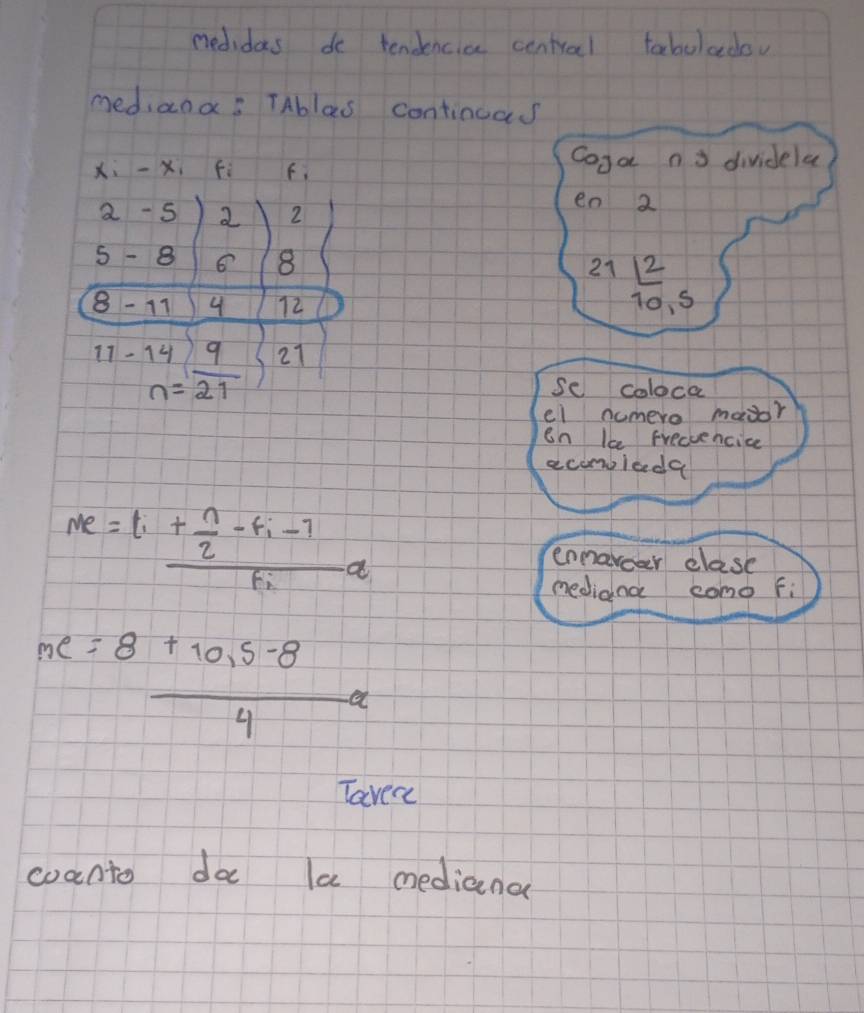 medidas de tendencia central tabulados
mediana: TAblas continuas
xi - xi fi Fi
2 - 5 2 2
5 - 8 6 8
8 - 11 4 12
11 - 14 9 21
n = 21
Coga n y dividela
en 2
21 2
10,5
se coloca
el numero mayor
en la frecuencia
acumulada
enmarcar clase
mediana como Fi
Me = li + n/2 - fi - 1
Fi a
me = 8 + 10,5 - 8
4 a
Tarea
cuanto da la mediana